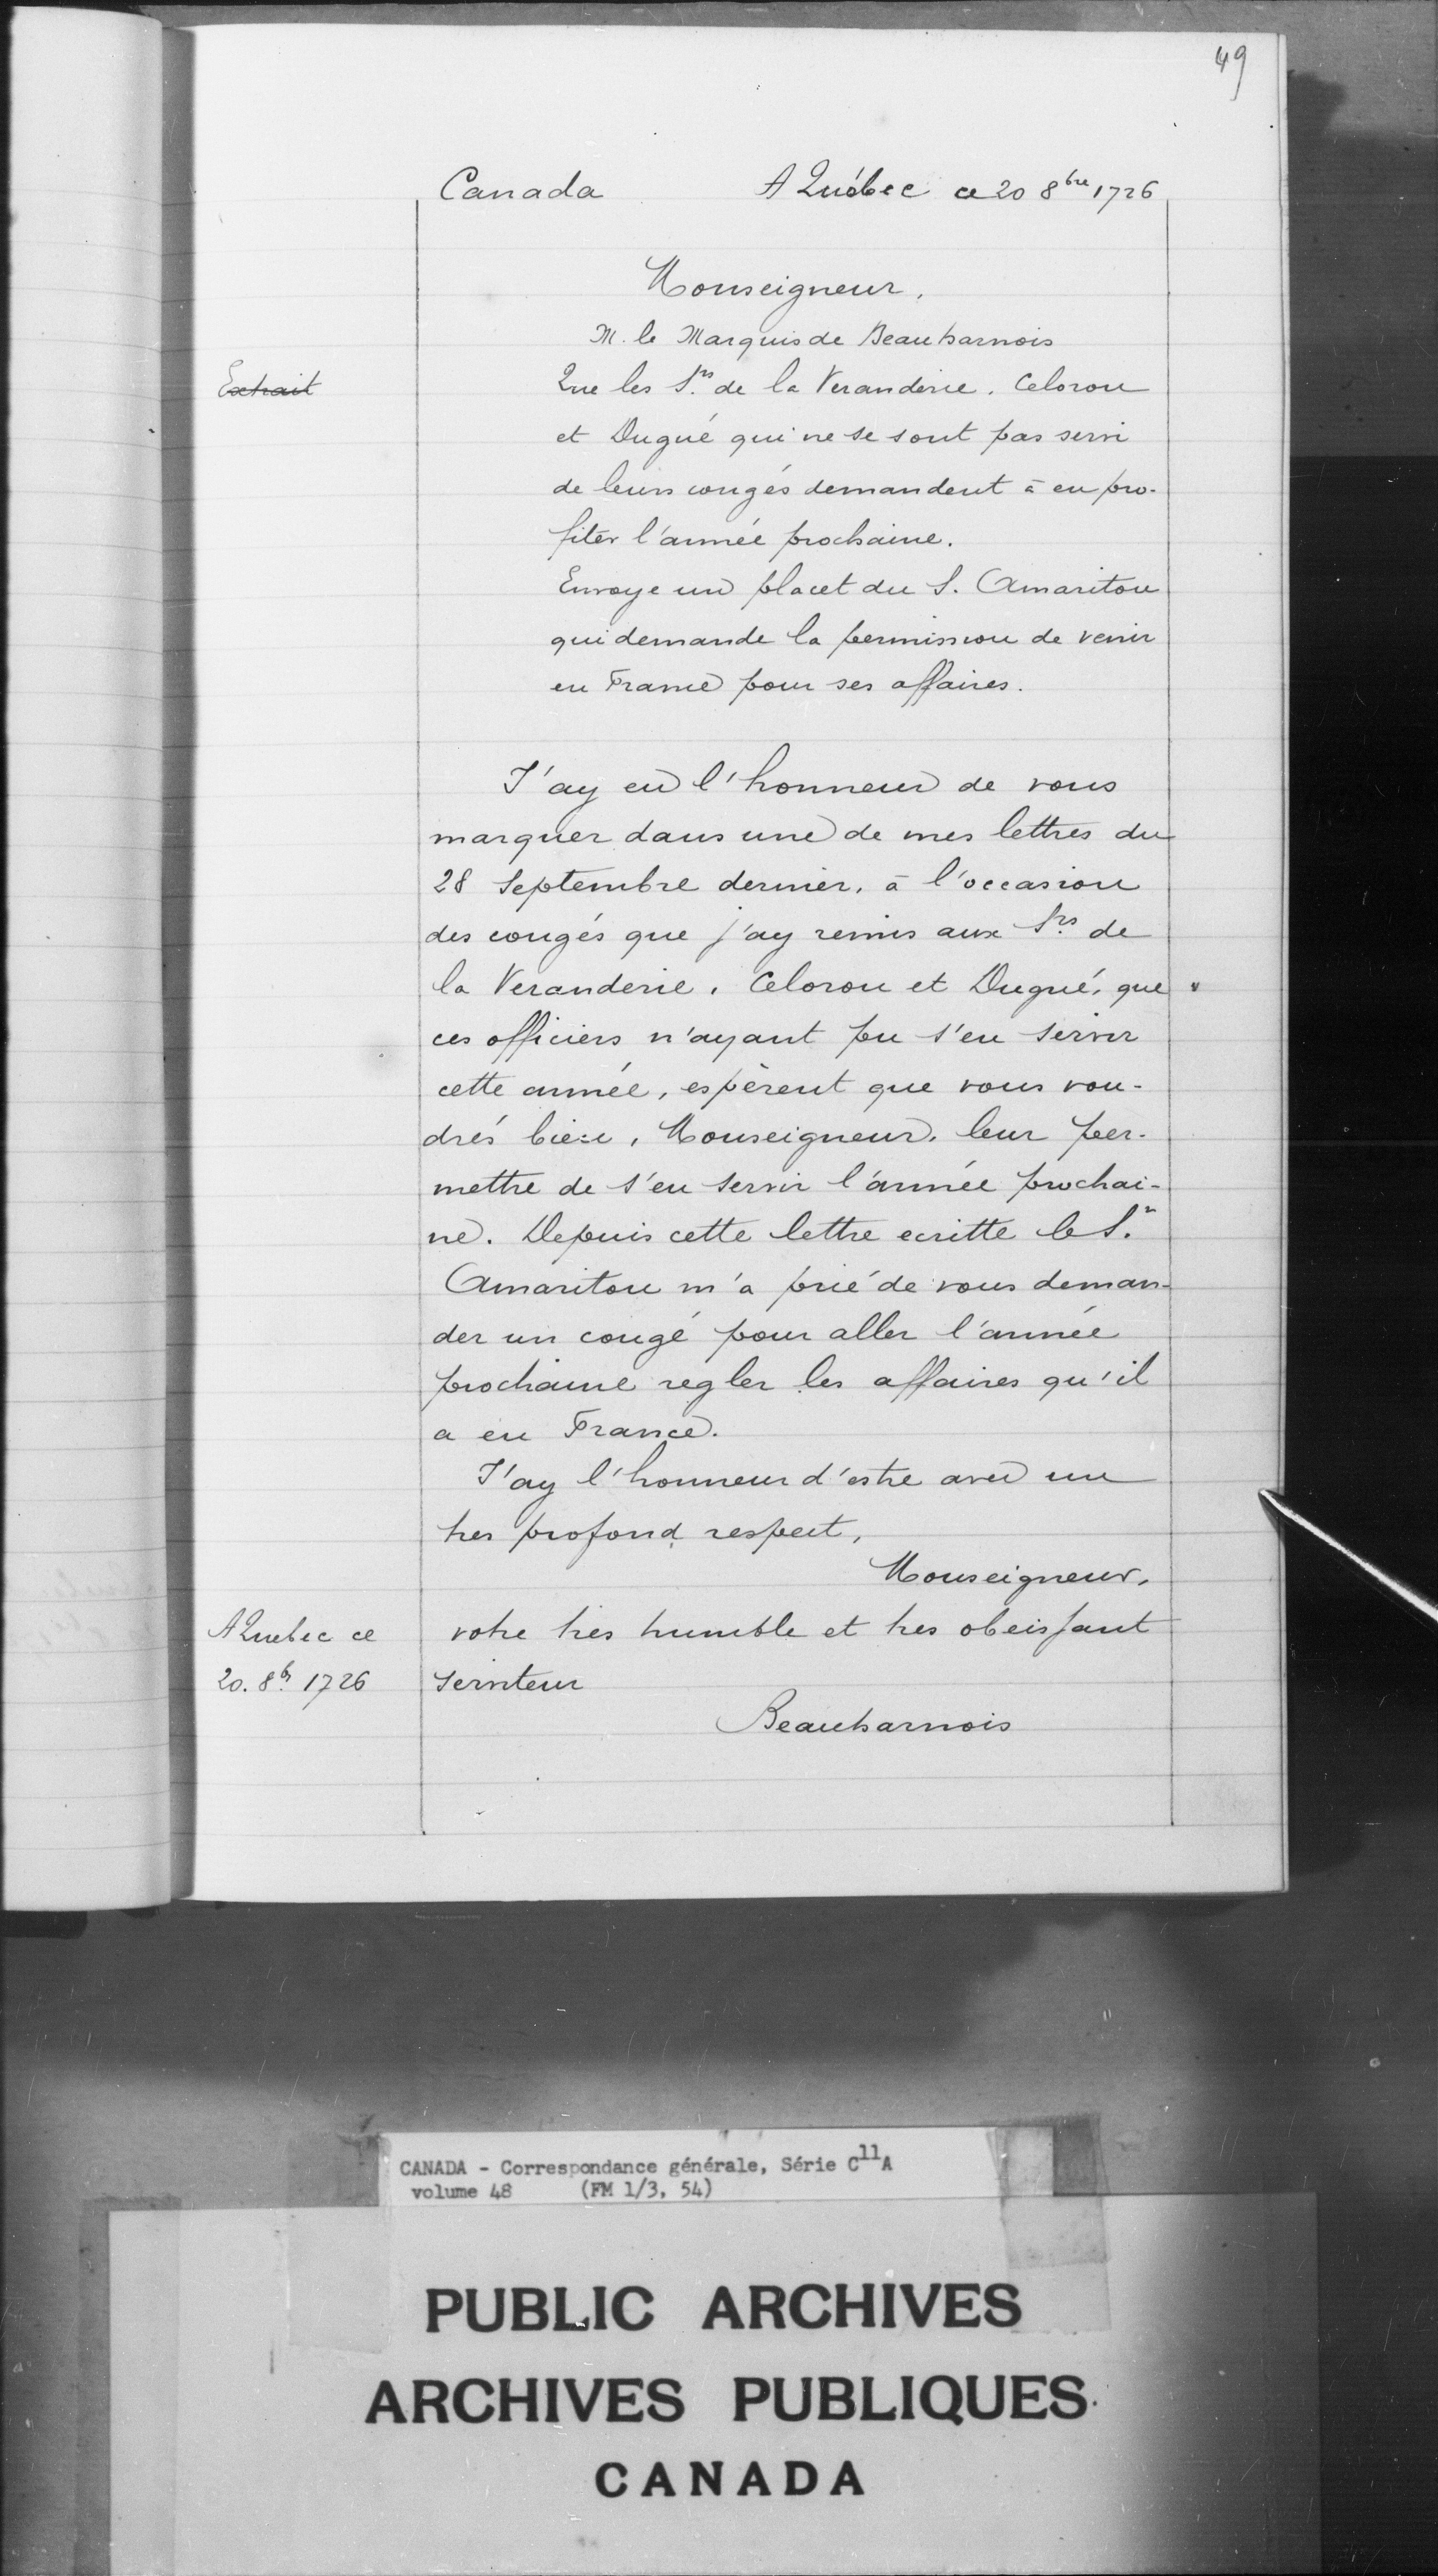 49
Canada A Québec ce 20 8bre 1726
Monseigneur,
M. le Marquis de Beauharnois
Extrait
Que les Srs de la Veranderie, Celoron
et Dugué qui ne se sont pas servi
de leurs congés demandent à en pro-
fiter l'année prochaine.
Envoye un placet du S. Amariton
qui demande la permission de venir
en France pour ses affaires.
J'ay eu l'honneur de vous
marquer dans une de mes lettres du
28 Septembre dernier, à l'occasion
des congés que j'ay remis aux Srs de
la Veranderie, Celoron et Dugué, que
ces officiers n'ayant pu s'en servir
cette année, espèrent que vous vou-
drés bien, Monseigneur, leur per-
mettre de s'en servir l'année prochai-
ne. Depuis cette lettre ecritte le Sr
Amariton m'a prié de vous deman-
der un congé pour aller l'année
prochaine regler les affaires qu'il
a en France.
J'ay l'honneur d'estre avec un
tres profond respect,
Monseigneur,
votre très humble et tres obeissant
serviteur
Beauharnois
A Quebec ce
20. 8br 1726
CANADA - Correspondance générale, Série C11A
volume 48 (FM 1/3, 54)
PUBLIC ARCHIVES
ARCHIVES PUBLIQUES
CANADA